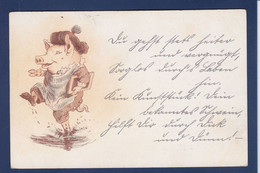 Du gehst stets heiter
und vergnügt,
Sorglos durch's Leben
hin.
Kein Kunststück! Dein
bekanntes Schwein,
Hilft Dir durch Dick
und Dünn! -